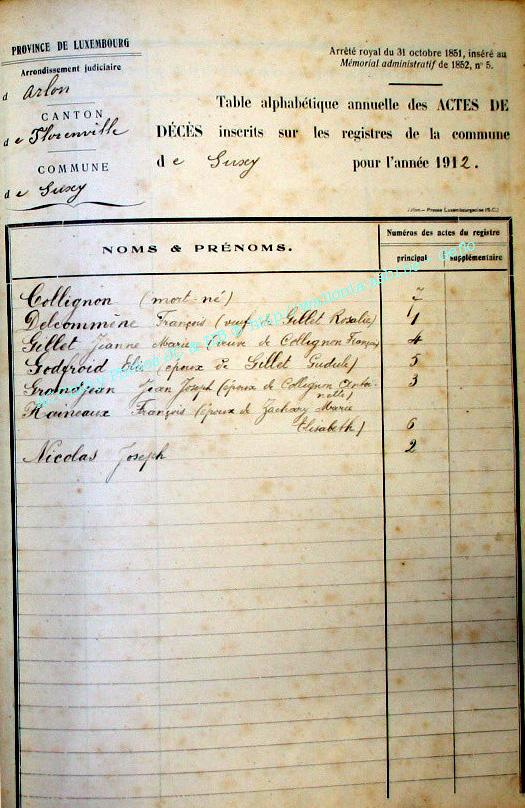 PROVINCE DE LUXEMBOURG
Arrondissement judiciaire
d Arlon
CANTON
de Florenville
COMMUNE
de Suxy
Arrêté royal du 31 octobre 1851, inséré au
Mémorial administratif de 1852, n° 5.
Table alphabétique annuelle des ACTES DE
DÉCÈS inscrits sur les registres de la commune
de Suxy pour l'année 1912.
Arlon. — Presse Luxembourgeoise (S.C.)
NOMS & PRÉNOMS.
Numéros des actes du registre
principal supplémentaire
Collignon (mort-né) 7
Delcommène François (veuf de Gillet Rosalie) 1
Gillet Jeanne Marie (veuve de Collignon François) 4
Godfroid Élie (époux de Gillet Gudule) 5
Grandjean Jean Joseph (époux de Collignon Antoi- 3
nette)
Raineaux François (époux de Zachary Marie
Elisabeth) 6
Nicolas Joseph 2